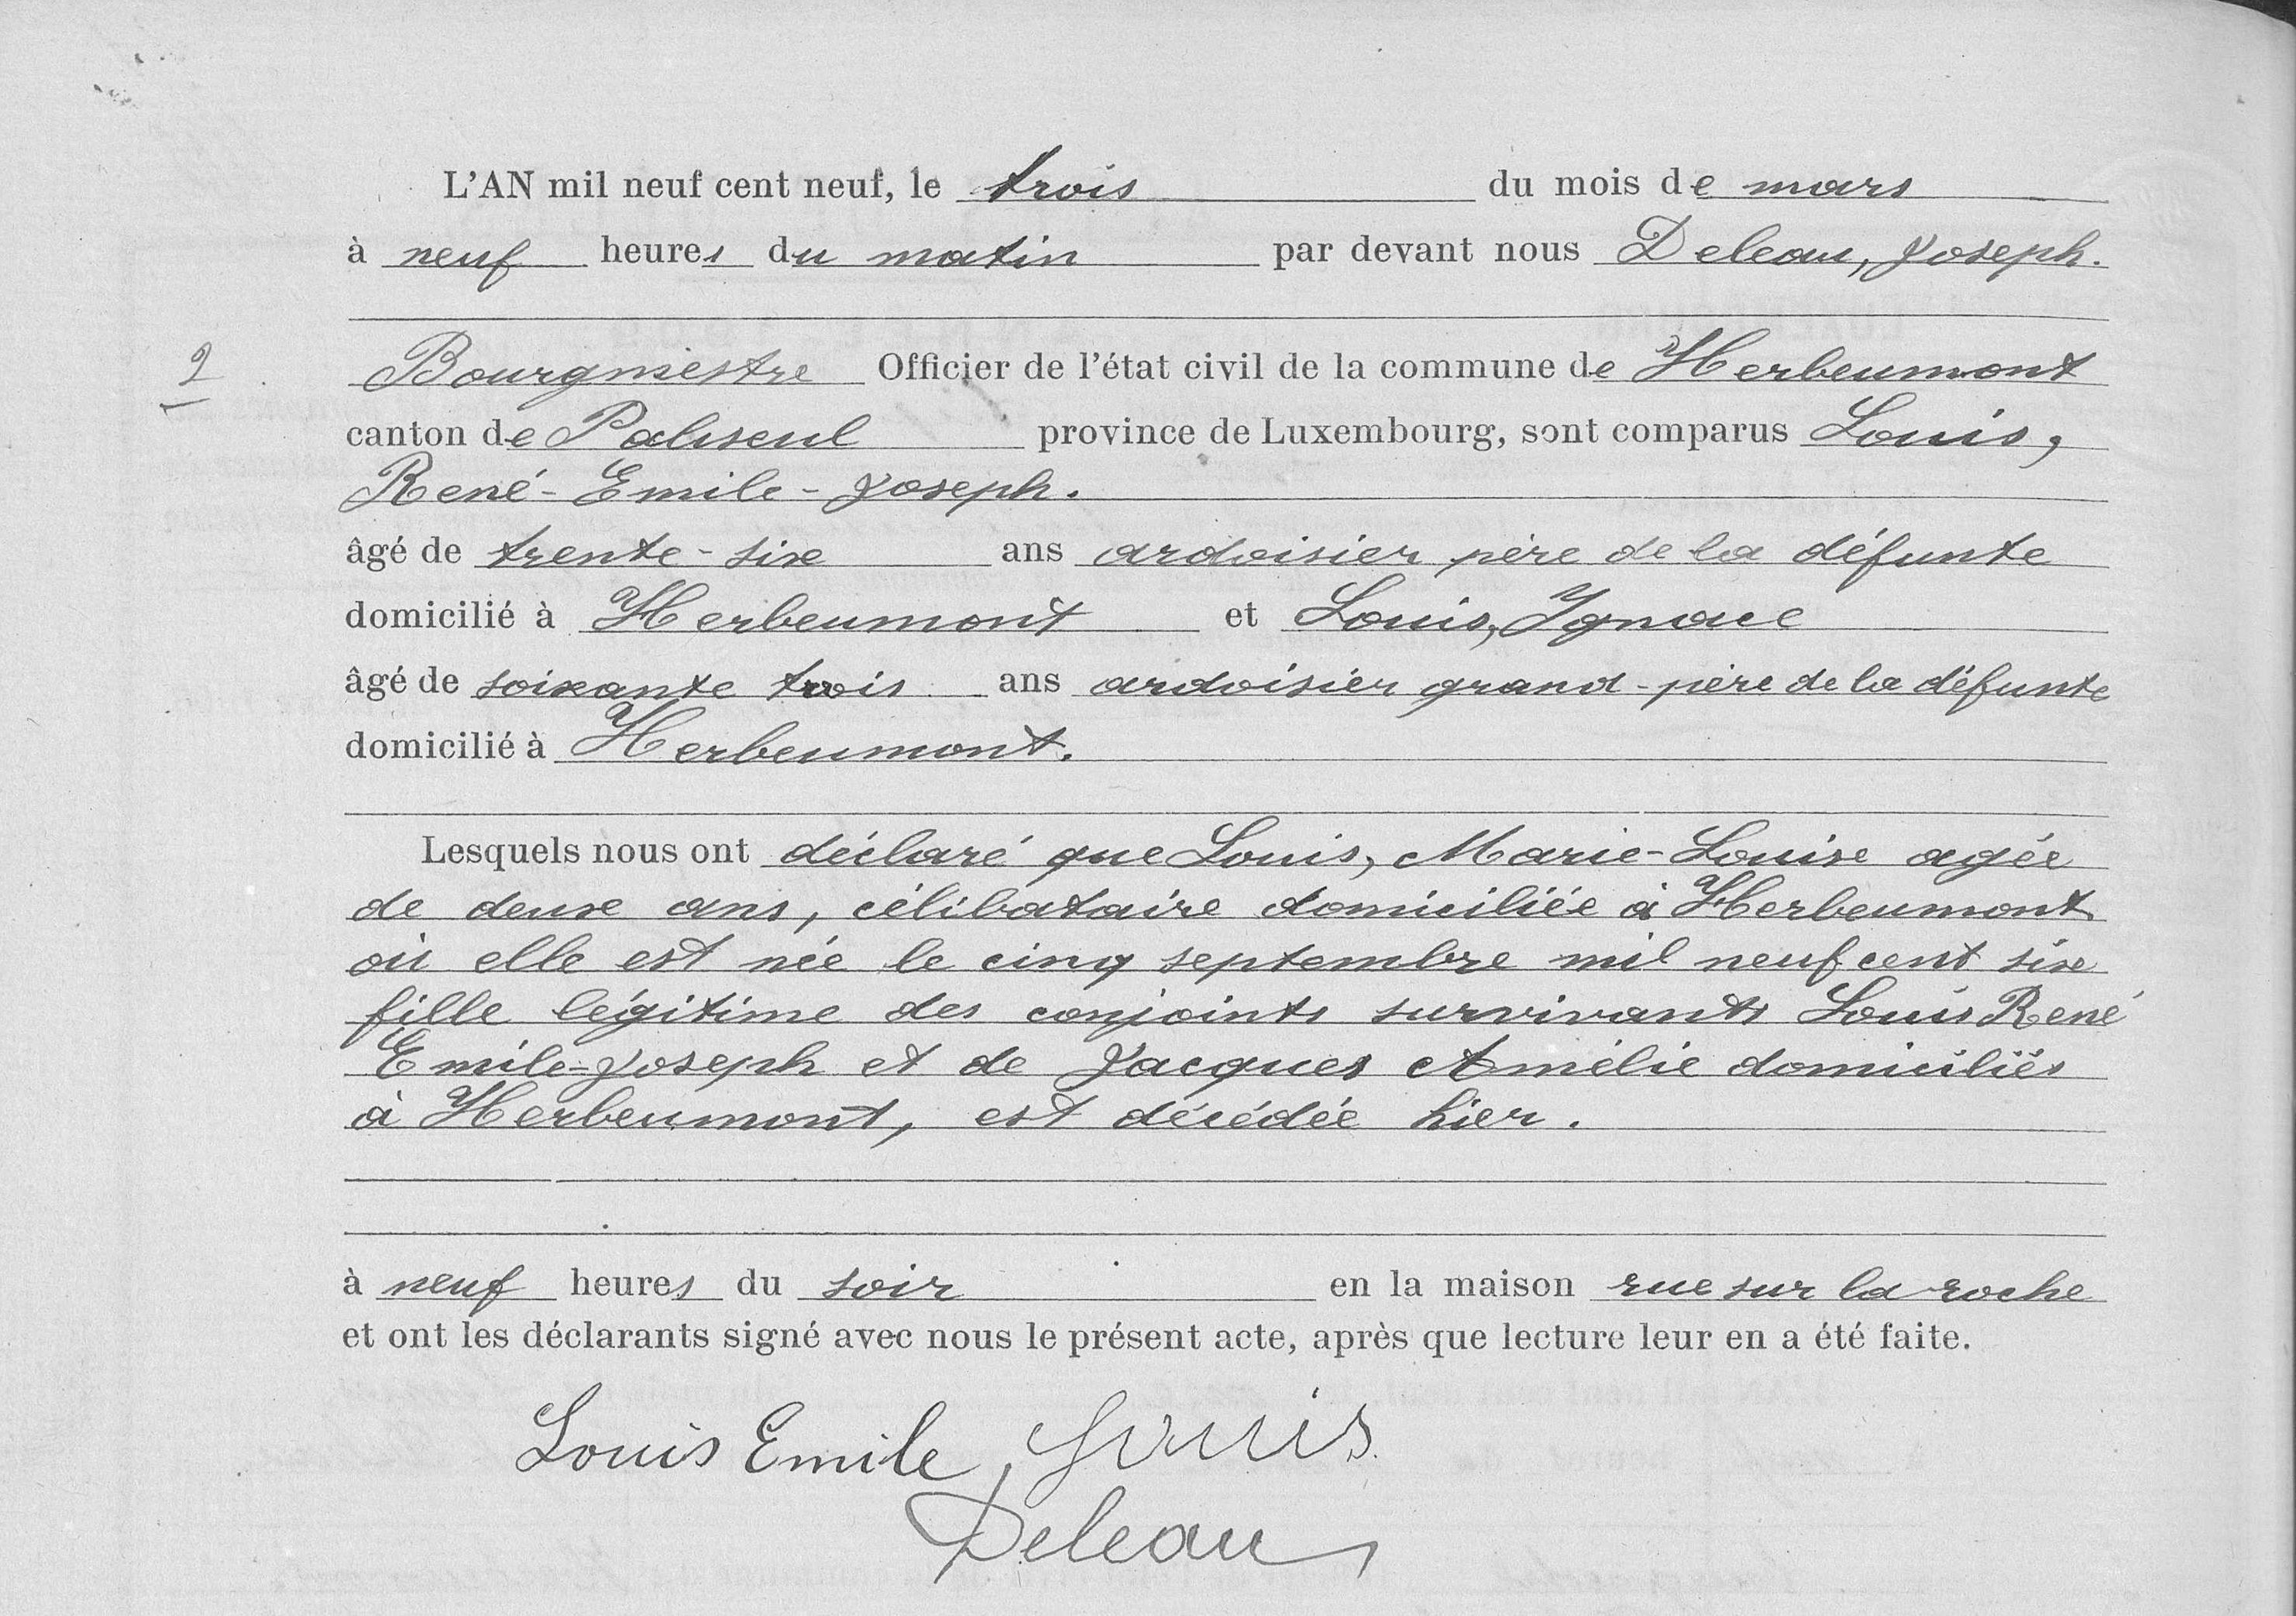 L'AN mil neuf cent neuf, le trois du mois de mars
à neuf heures du matin par devant nous Deleau, Joseph.
2
Bourgmestre Officier de l'état civil de la commune de Herbeumont
canton de Paliseul province de Luxembourg, sont comparus Louis,
René-Emile-Joseph.
âgé de trente-six ans ardoisier père de la défunte
domicilié à Herbeumont et Louis, Ignace
âgé de soixante trois ans ardoisier grand-père de la défunte
domicilié à Herbeumont.
Lesquels nous ont déclaré que Louis, Marie-Louise agée
de deux ans, célibataire domiciliée à Herbeumont
où elle est née le cinq septembre mil neuf cent six
fille légitime des conjoints survivants Louis René
Emile-Joseph et de Jacques Amélie domiciliés
à Herbeumont, est décédée hier.
à neuf heures du soir en la maison rue sur la roche
et ont les déclarants signé avec nous le présent acte, après que lecture leur en a été faite.
Louis Emile, Louis
Deleau